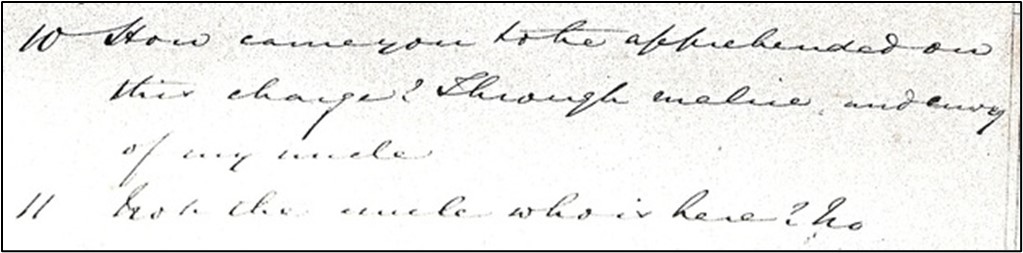 10 How came you to be apprehended on
this charge? Through malice and envy
of my uncle
11 Not the uncle who is here? No